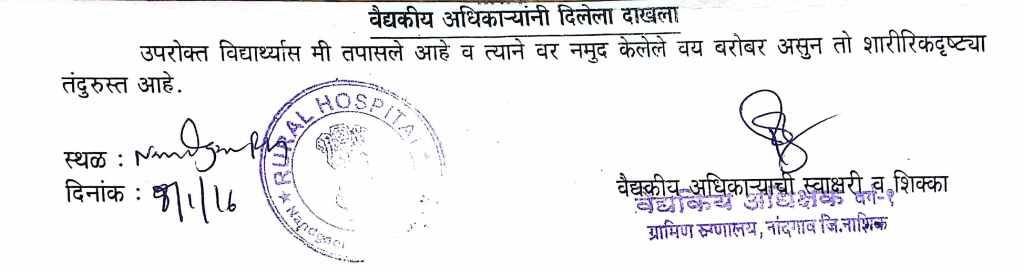 वैद्यकीय अधिकाऱ्यांनी दिलेला दाखला
उपरोक्त विद्यार्थ्यास मी तपासले आहे व त्याने वर नमुद केलेले वय बरोबर असुन तो शारीरिकदृष्ट्या
तंदुरुस्त आहे.
RURAL HOSPITAL
स्थळ :
दिनांक : 8/1/16
Nandgaon
वैद्यकीय अधिकाऱ्याची स्वाक्षरी व शिक्का
वैद्यकिय अधिक्षक वर्ग-१
ग्रामिण रुग्णालय, नांदगाव जि.नाशिक